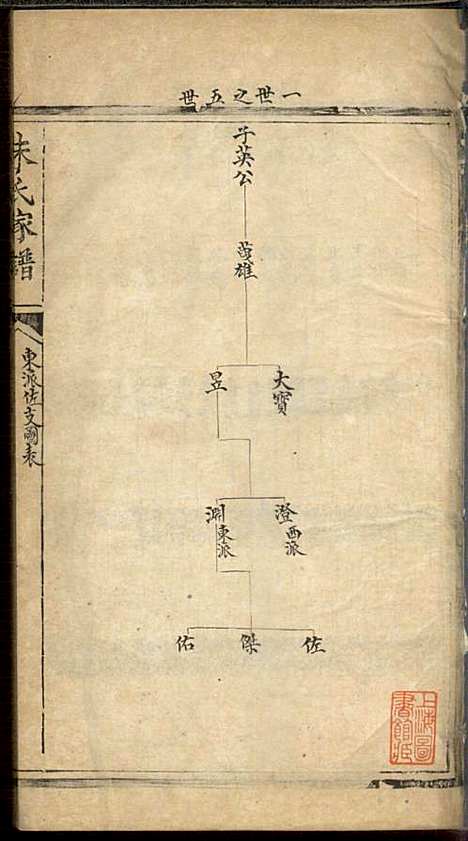 一世之五世
子英公
萬雄
大寶
昱
澄西派
淵東派
佐
傑
佑
朱氏家譜
東派佐支圖表
上海圖
書館藏